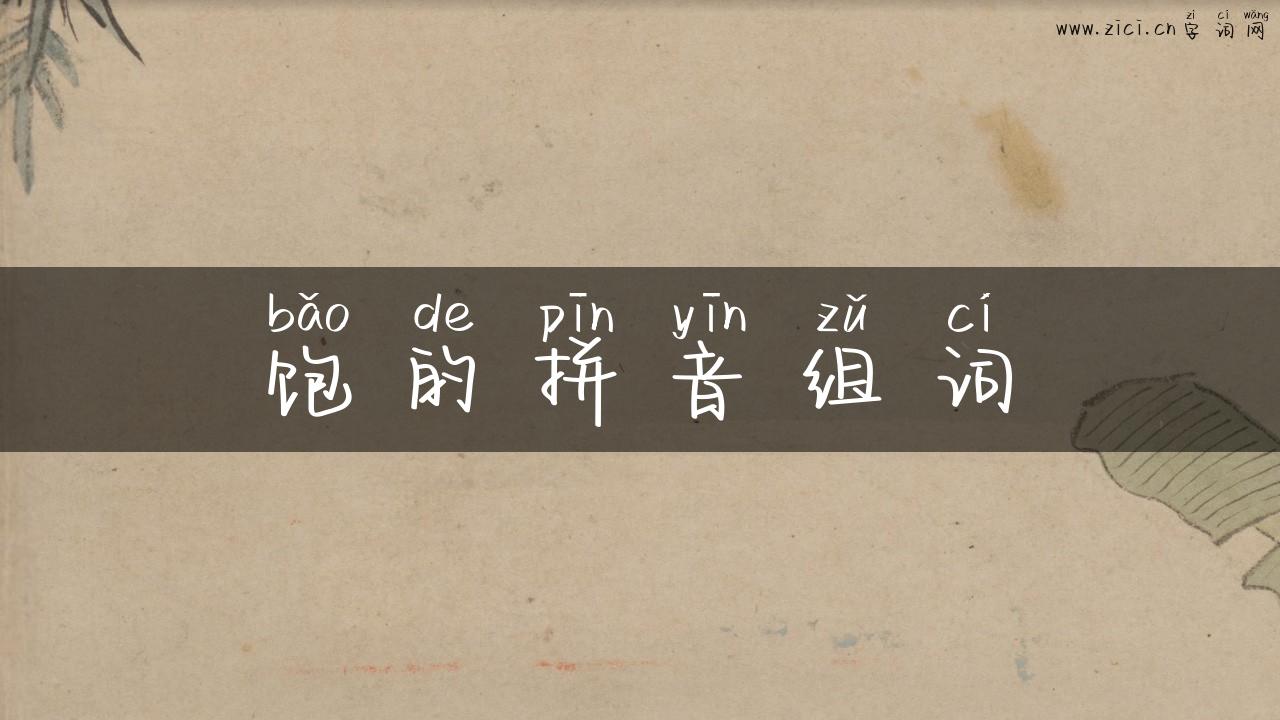 zì cí wǎng
www.zici.cn 字词网
bǎo de pīn yīn zǔ cí
饱的拼音组词